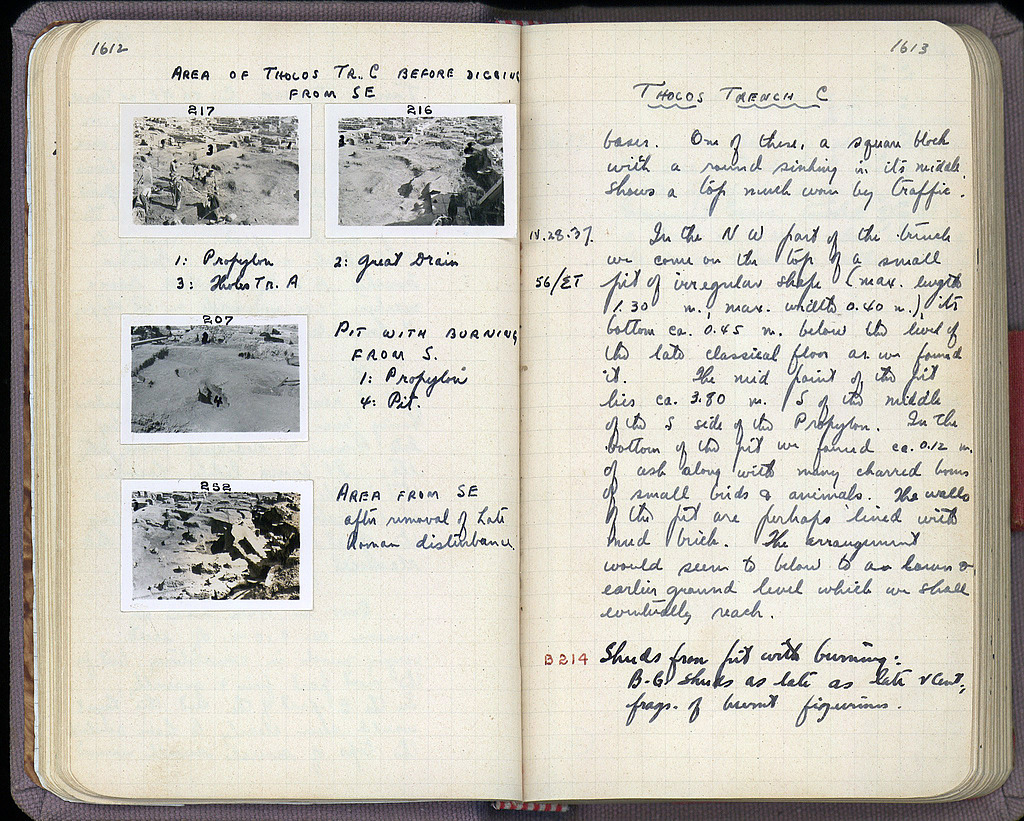 1612
AREA OF THOLOS TR. C BEFORE DIGGING
FROM SE
217
216
3
1: Propylon
2: Great Drain
3: Tholos Tr. A
207
4
PIT WITH BURNING
FROM S.
1: Propylon
4: Pit.
252
AREA FROM SE
after removal of Late
Roman disturbance.
1613
THOLOS TRENCH C
bases. One of these, a square block
with a round sinking in its middle
shows a top much worn by traffic.
IV.28.37.
In the NW part of the trench
we come on the top of a small
56/ΣΤ
pit of irregular shape (max. length
1.30 m., max. width 0.40 m.), its
bottom ca. 0.45 m. below the level of
the late classical floor as we found
it. The mid point of the pit
lies ca. 3.80 m. S of the middle
of the S side of the Propylon. In the
bottom of the pit we found ca. 0.12 m.
of ash along with many charred bones
of small birds & animals. The walls
of the pit are perhaps lined with
mud brick. The arrangement
would seem to belong to an
earlier ground level which we shall
eventually reach.
B 214
Sherds from pit with burning:
B-G. sherds as late as late V Cent,
frags. of burnt figurines.